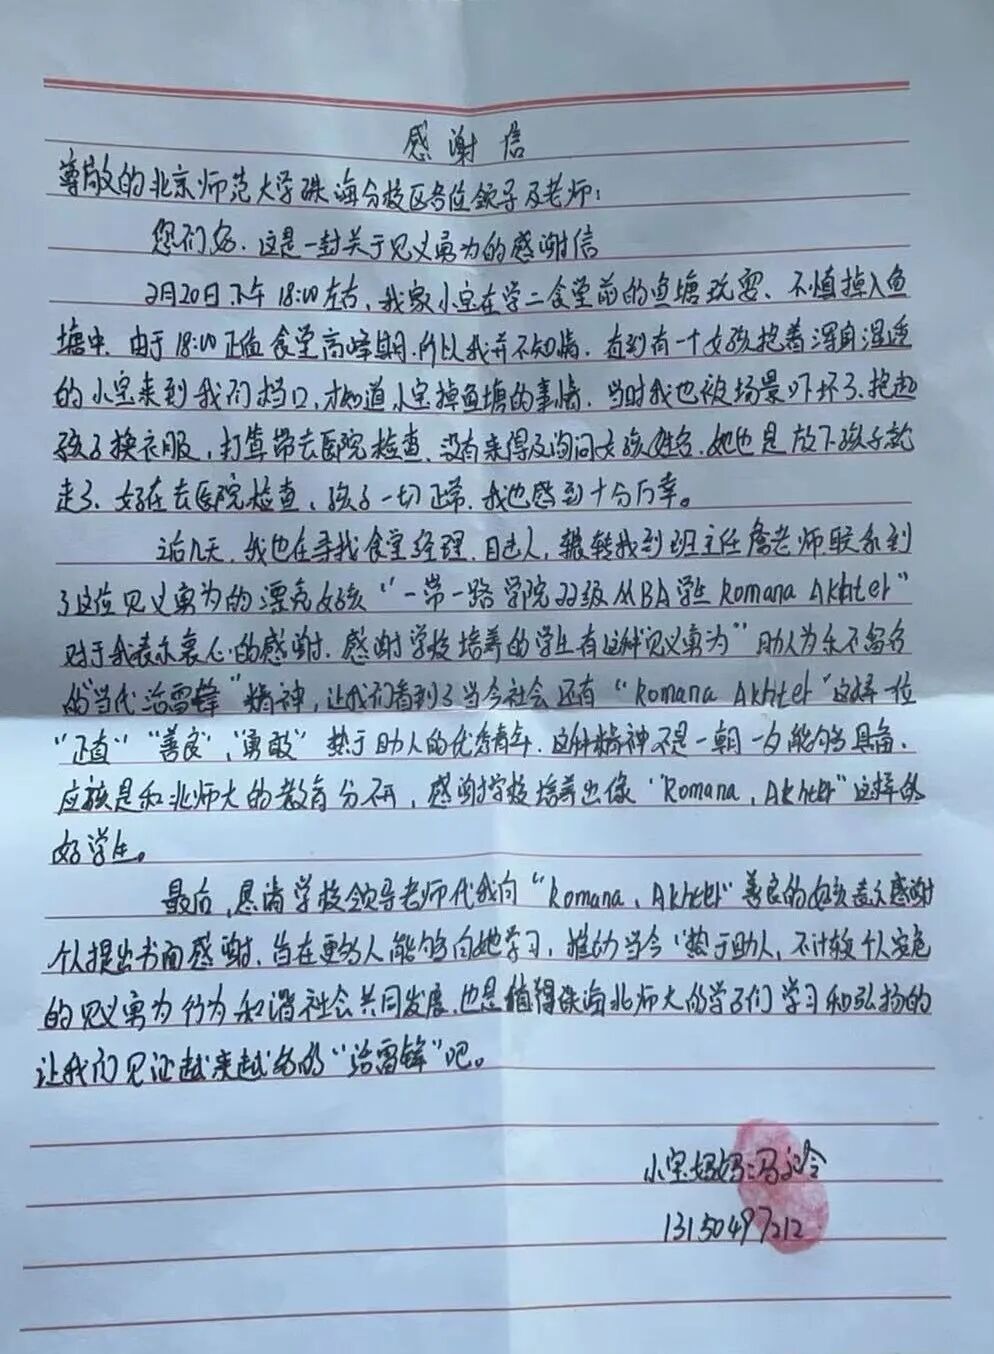 感谢信
尊敬的北京师范大学珠海分校区各位领导及老师：
您们好、这是一封关于见义勇为的感谢信
2月20日下午18:00左右，我家小宝在学二食堂前的鱼塘玩耍、不慎掉入鱼
塘中，由于18:00正值食堂高峰期，所以我并不知情，直到有一个女孩抱着浑身湿透
的小宝来到我们档口，才知道小宝掉鱼塘的事情，当时我也被场景吓坏了、抱起
孩子换衣服，打算带去医院检查、没有来得及询问女孩姓名，她也是放下孩子就
走了、好在去医院检查，孩子一切正常，我也感到十分万幸。
之后几天，我也在寻找食堂经理、目击人，辗转找到班主任詹老师联系到
了这位见义勇为的漂亮女孩“一带一路学院22级MBA学生Romana Akhter”
对于我表示衷心的感谢，感谢学校培养的学生有这种见义勇为”助人为乐不留名
的“当代活雷锋”精神，让我们看到了当今社会还有“Romana Akhter”这样一位
“正直”“善良”、“勇敢”热于助人的优秀青年，这种精神不是一朝一夕能够具备，
应该是和北师大的教育分不开，感谢学校培养出像“Romana、Akhter”这样的
好学生。
最后，恳请学校领导老师代我向“Romana、Akhter”善良的女孩表示感谢
个人提出书面感谢，旨在更多人能够向她学习，推动当今“热于助人，不计较个人安危
的见义勇为行为和谐社会共同发展，也是值得珠海北师大的学子们学习和弘扬的
让我们见证越来越多的“活雷锋”吧。
小宝妈妈：冯
13150497212